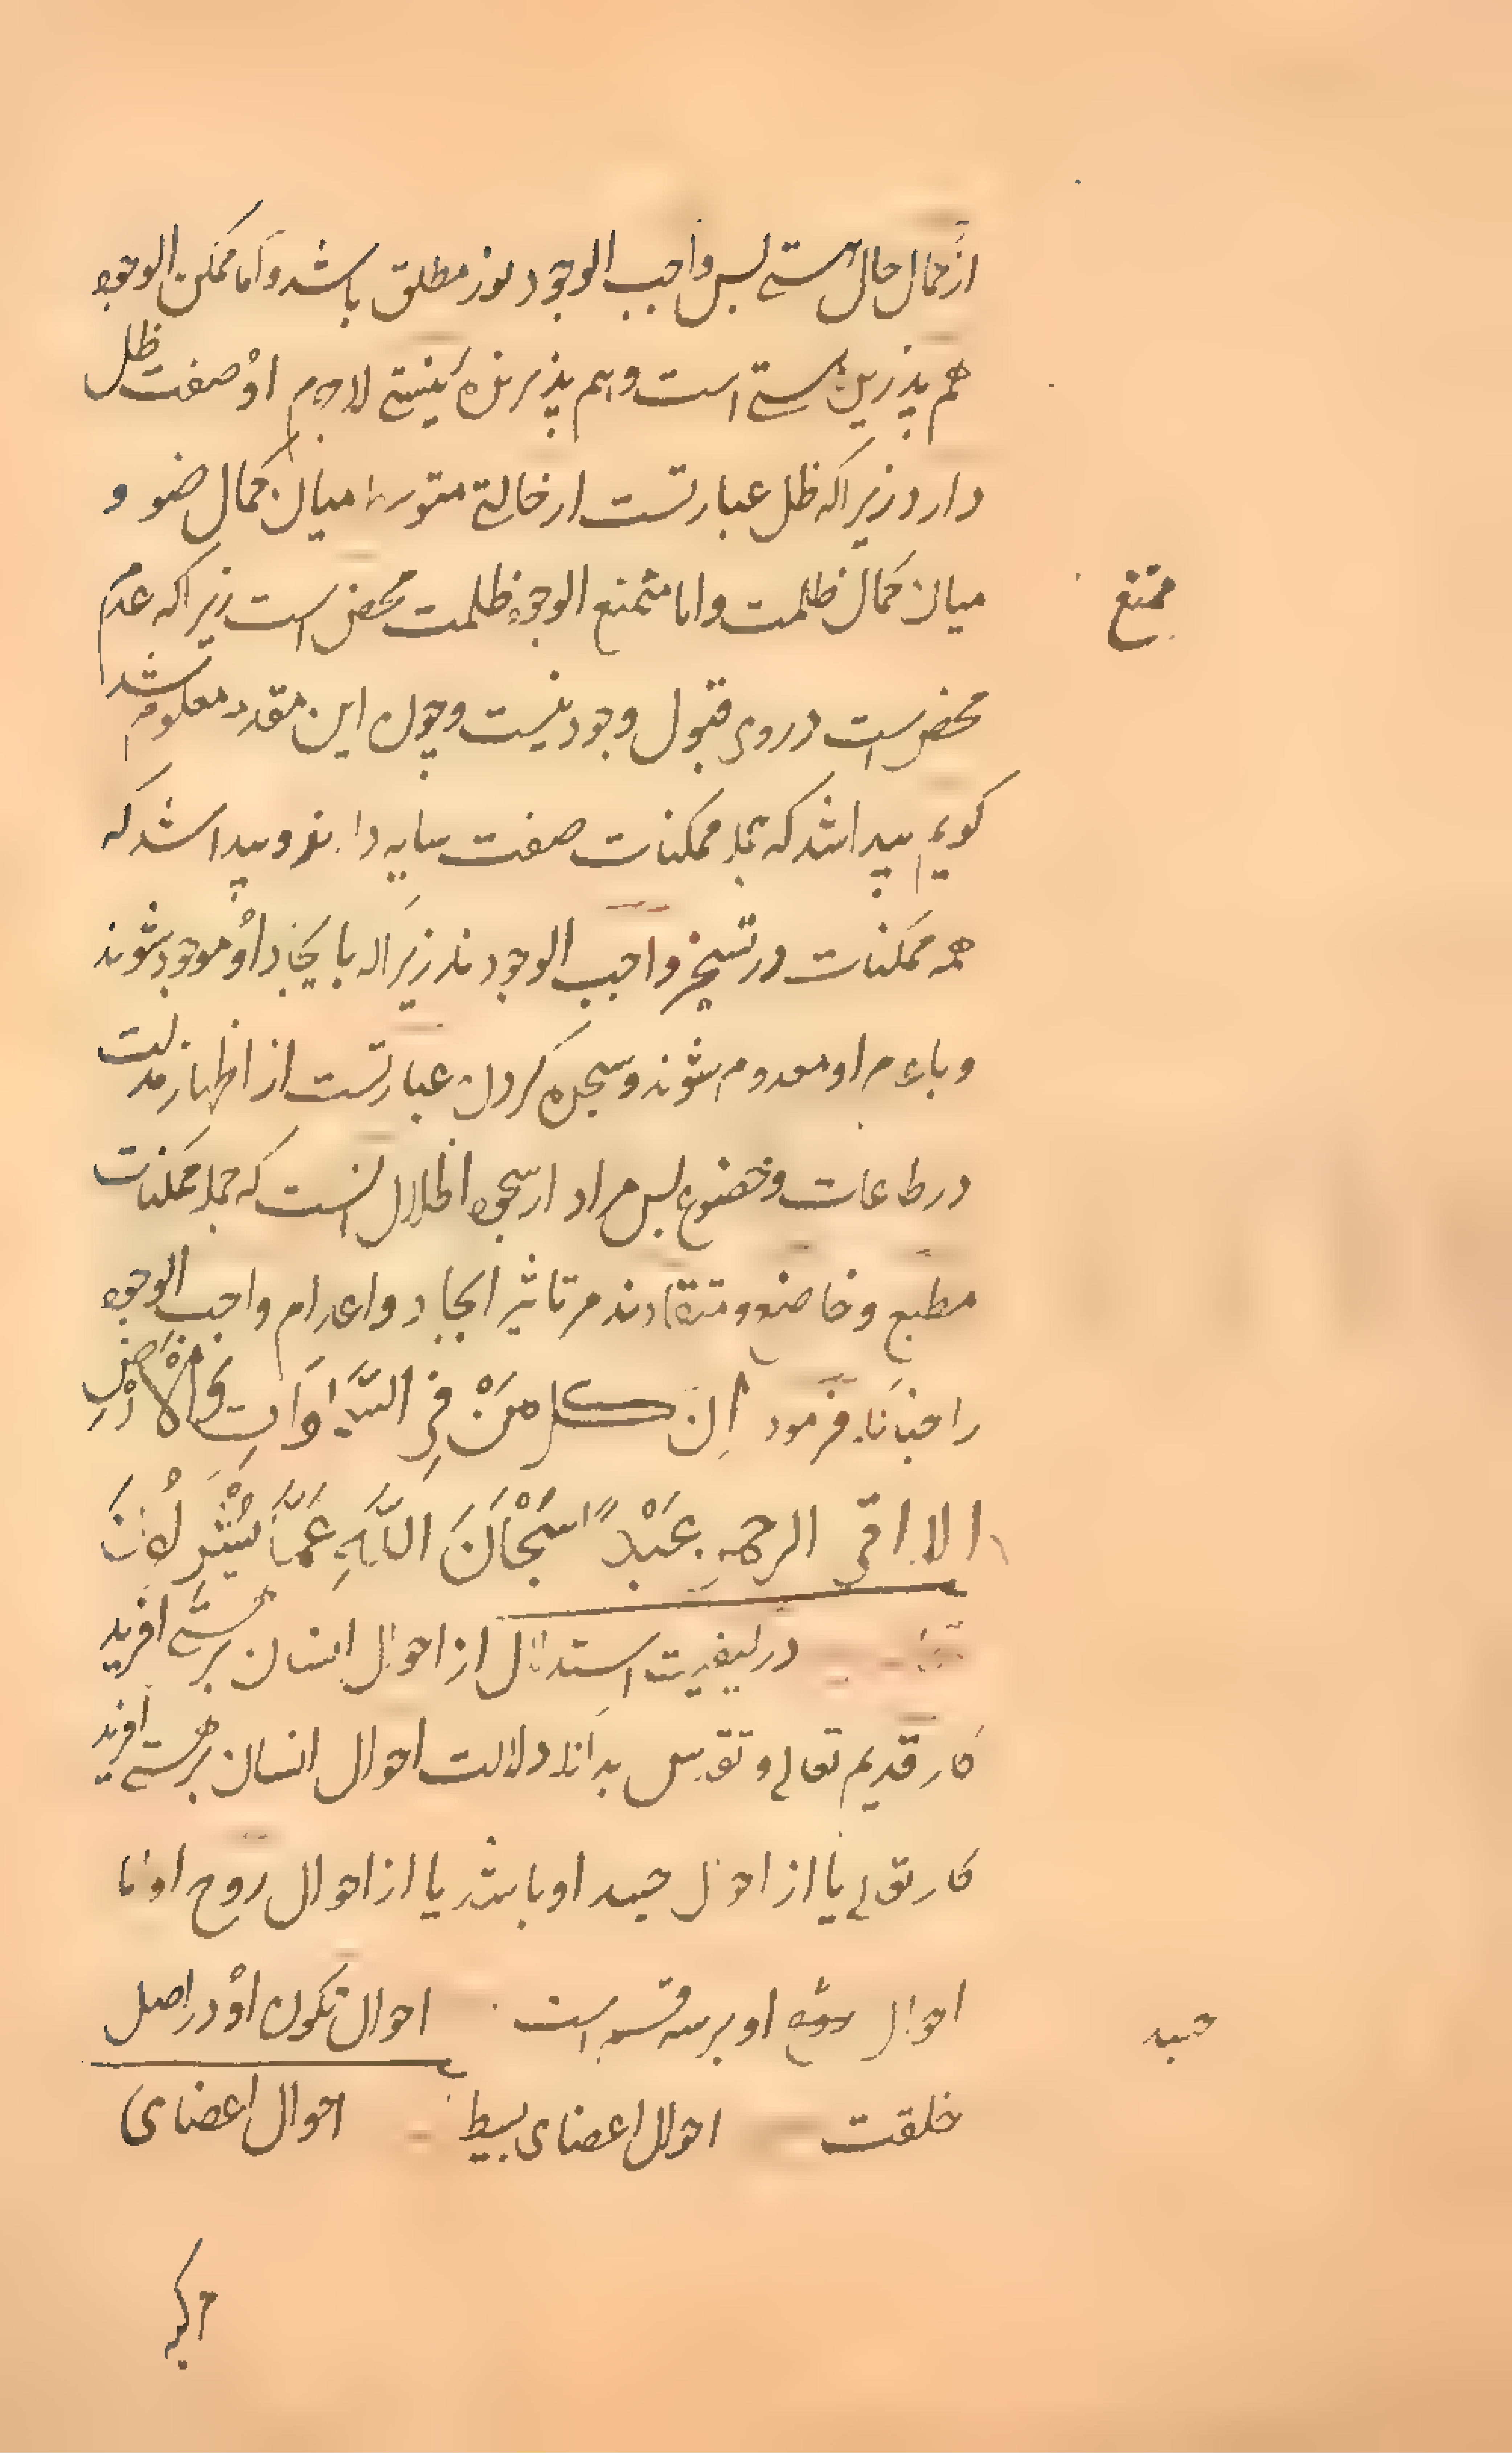 از کمال حال هستے پس واجب الوجود نور مطلق باشد و اما ممکن الوجود
هم پذیرین هستے است و هم پذیرنده نیستے لاجرم او صفت ظل
دارد زیراکه ظل عبارتست از حالتے متوسط میان کمال ضو و
میان کمال ظلمت و اما متمنع الوجود ظلمت محض است زیراکه عدم
ممتنع
محض است در وی قبول وجود نیست و چون این مقدمه معلوم شد
کویم پیدا شد که جمله ممکنات صفت سایه دارند و پیدا شد که
همه ممکنات در تسخیر واجب الوجودند زیراکه بایجاد او موجود شوند
و باعدام او معدوم شوند و سجده کردن عبارتست از اظهار مذلت
در طاعات و خضوع پس مراد از سجود اظلال انست که جمله ممکنات
مطیع و خاضع و منقادند مر تاثیر ایجاد و اعدام واجب الوجود
را چنانکه فرمود اِن كل مَنْ فِي السَّمَاوَاتِ وَالْاَرْضِ
الا اتی الرحمنِ عَبْدًا سُبْحَانَ اللَّهِ عَمَّا يُشْرِكُونَ
در کیفیت استدلال از احوال انسان بر هستے افرید
کار قدیم تعالے و تقدس بدانکه دلالت احوال انسان بر هستے افرید
کار تعالے یا از احوال جسد او باشد یا از احوال روح او اما
احوال او بر سه قسم است احوال تکون او در اصل
جسد
خلقت احوال اعضای بسیط احوال اعضای
مرکبه